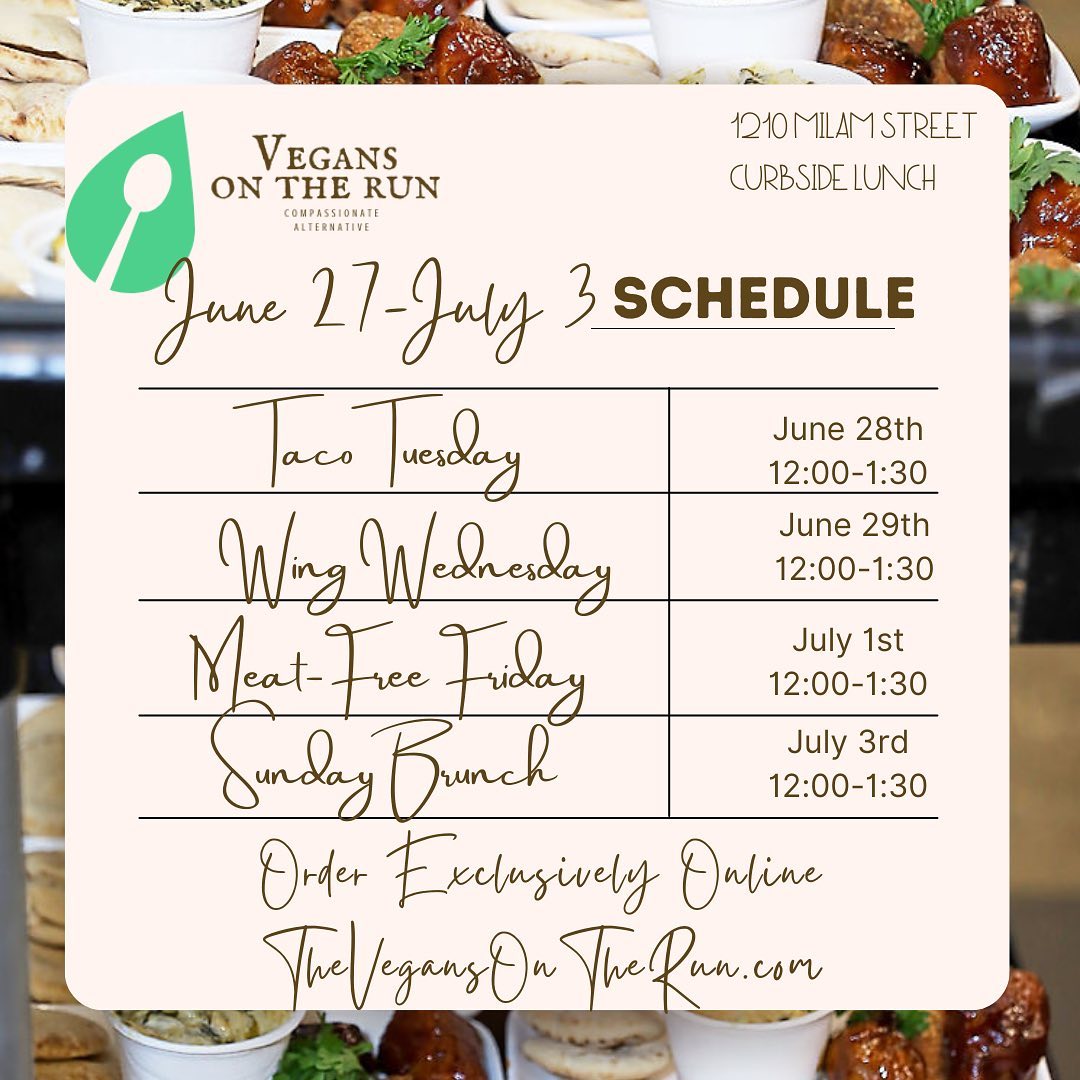 VEGANS
ON THE RUN
COMPASSIONATE
ALTERNATIVE
1210 MILAM STREET
CURBSIDE LUNCH
June 27-July 3 SCHEDULE
Taco Tuesday
June 28th
12:00-1:30
Wing Wednesday
June 29th
12:00-1:30
Meat-Free Friday
July 1st
12:00-1:30
Sunday Brunch
July 3rd
12:00-1:30
Order Exclusively Online
TheVegansOnTheRun.com